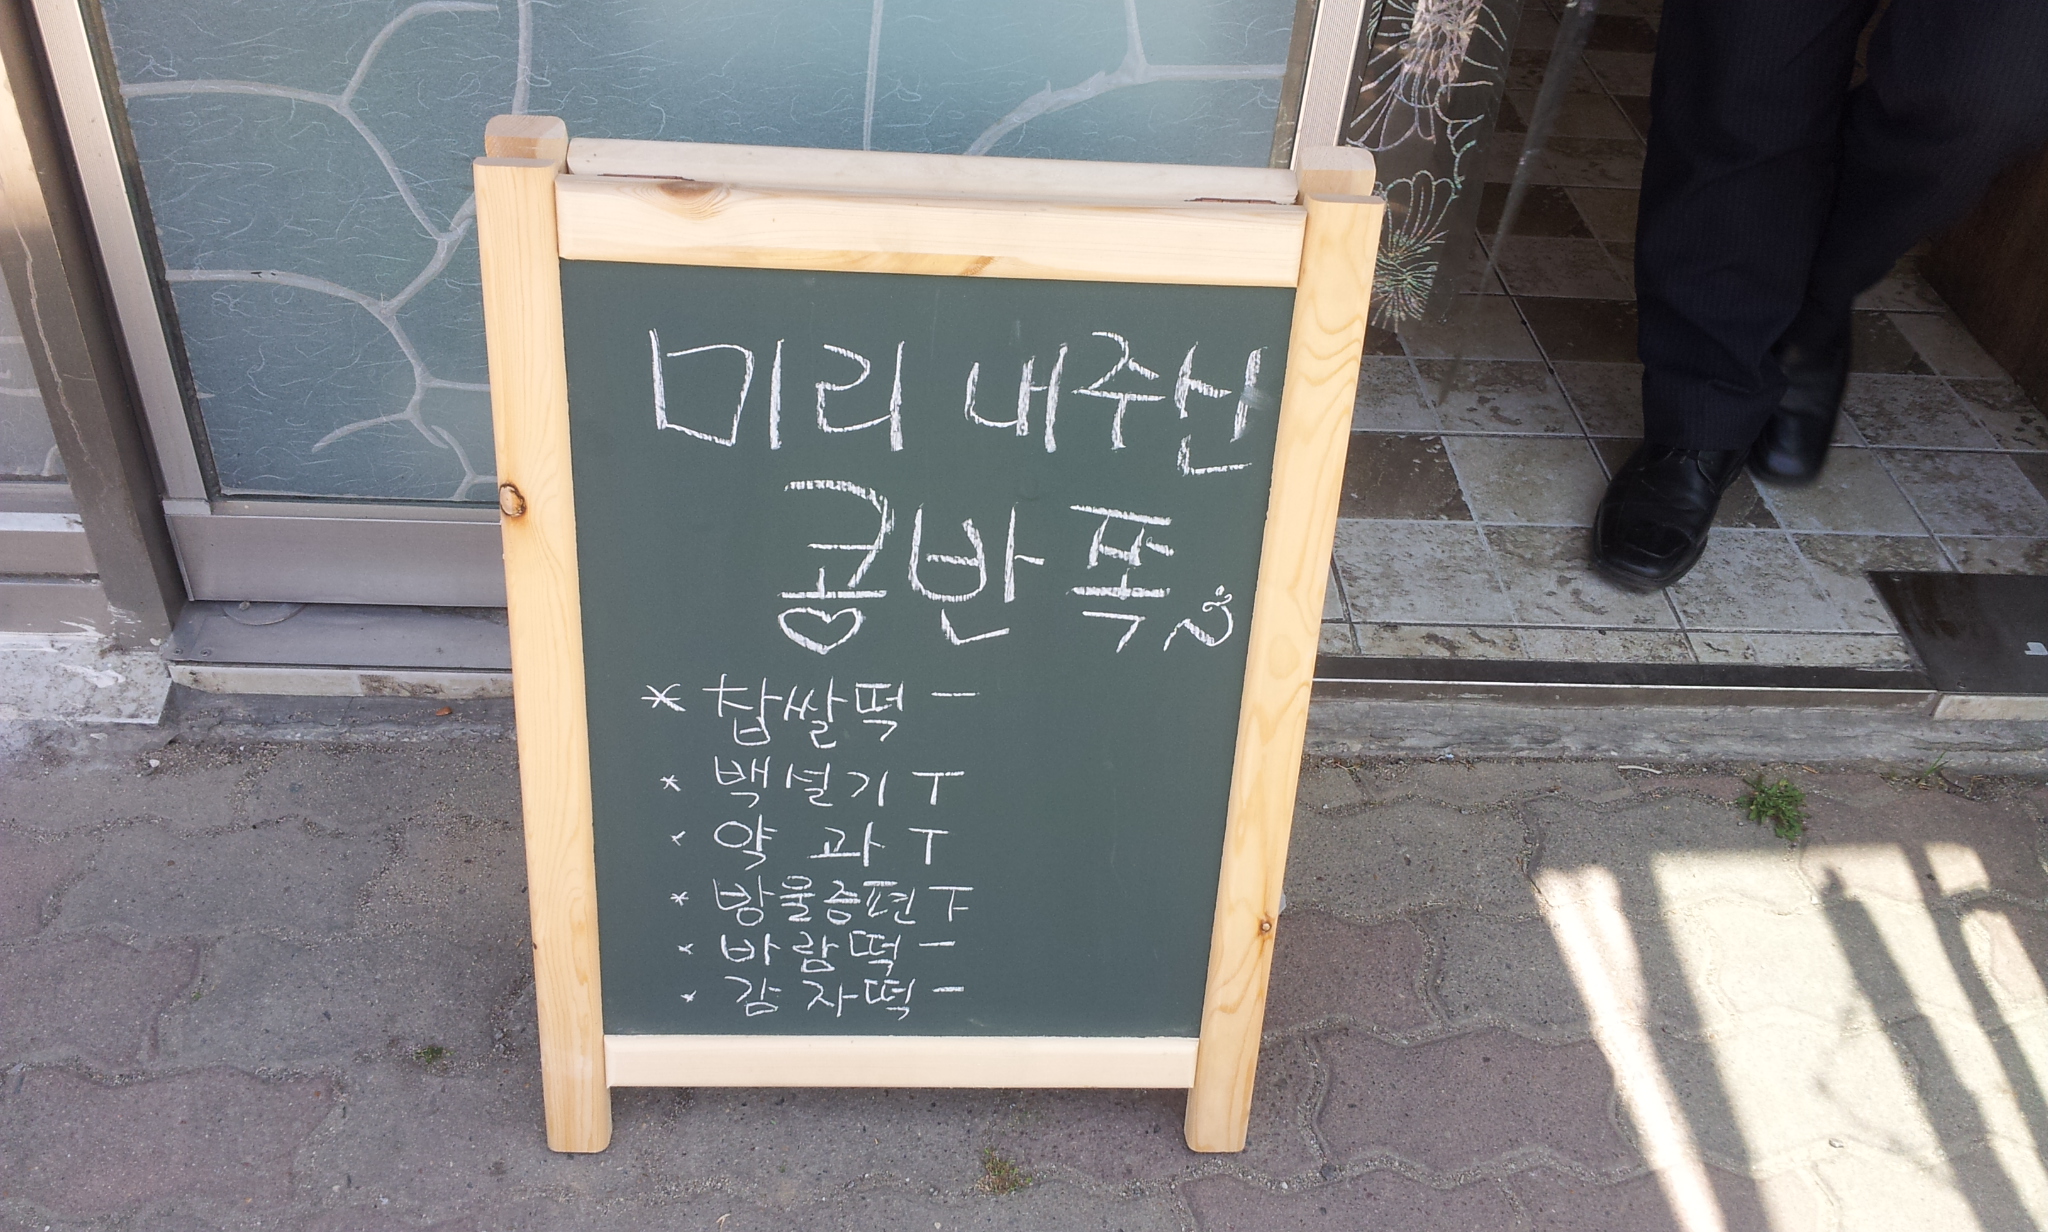 미리 내주신
콩반쪽
* 찹쌀떡 一
* 백설기 T
* 약과 T
* 방울증편 下
* 바람떡 一
* 감자떡 一